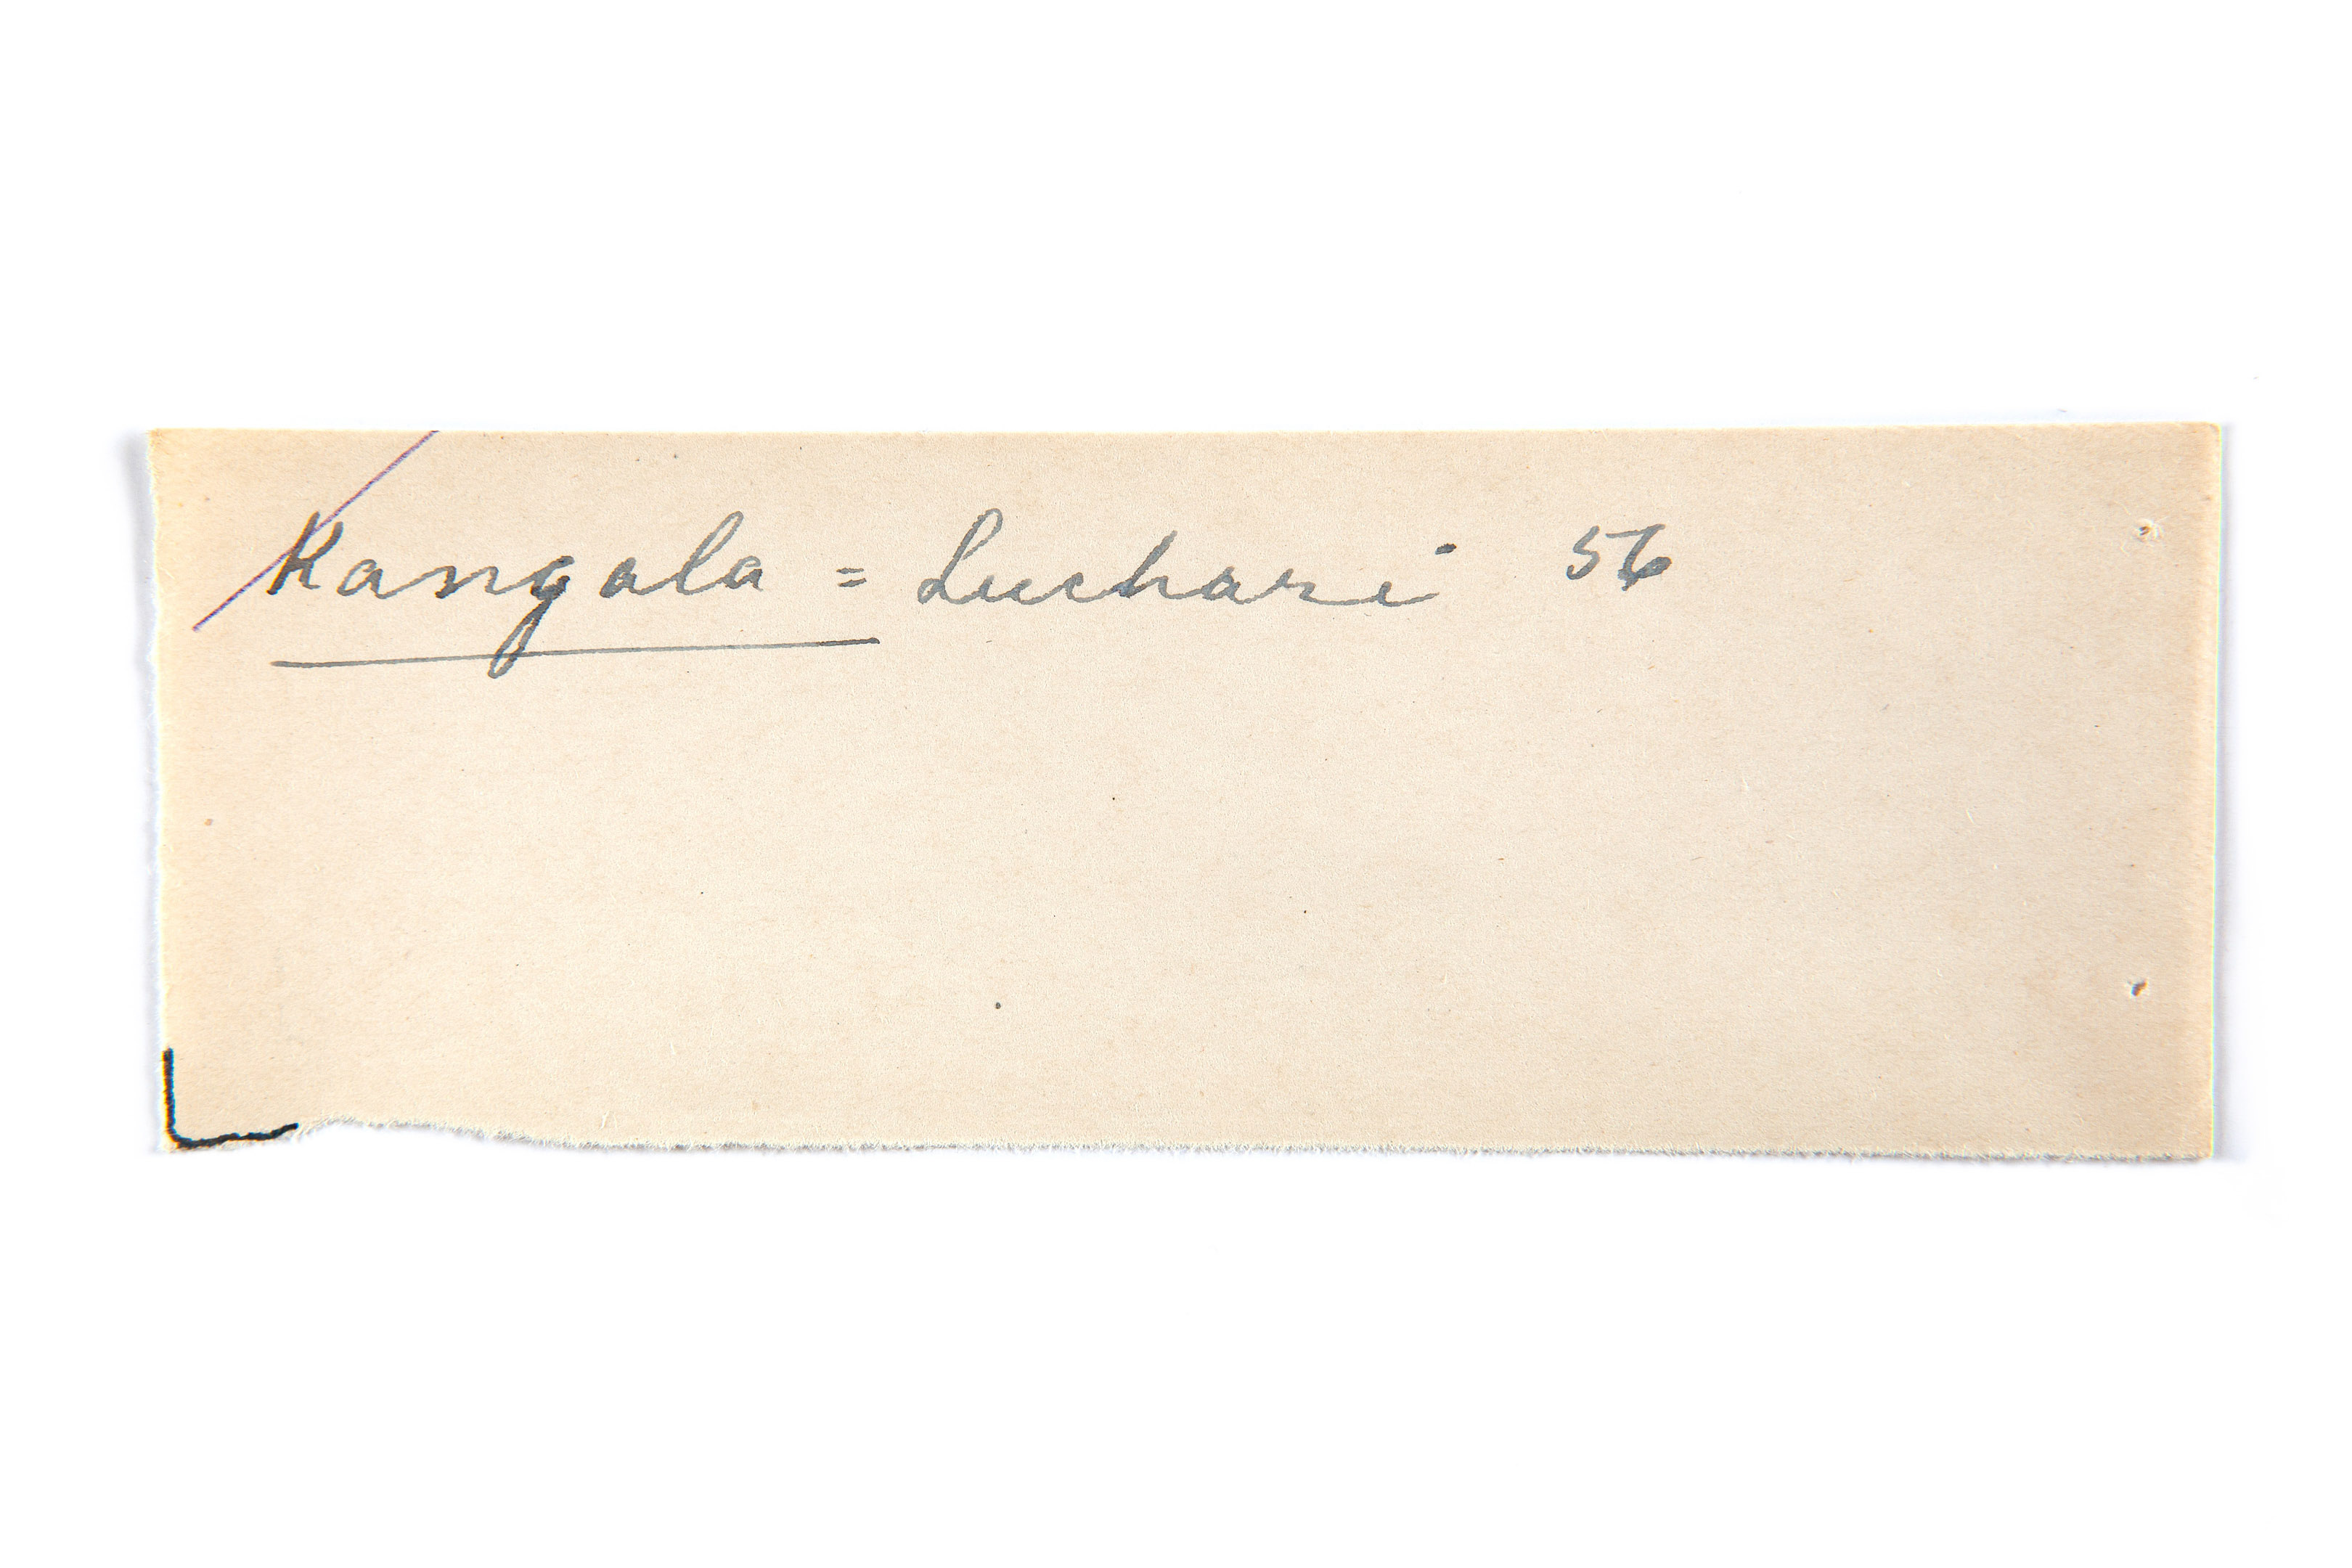 Kangala = Luchari 56